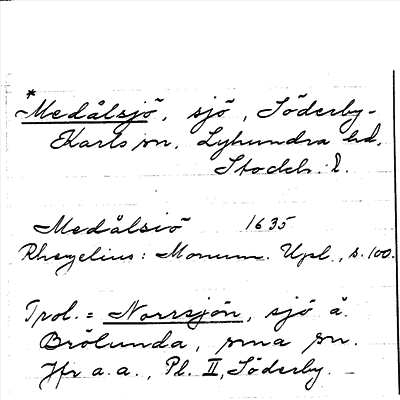 *Medålsjö, sjö, Söderby-
Karls sn. Lyhundra hd.
Stockh. l.
Medålsiö 1635
Rhezelius: Monum. Upl., s. 100.
Trol. = Norrsjön, sjö å
Brölunda, sma sn.
Jfr a.a., Pl. II, Söderby.